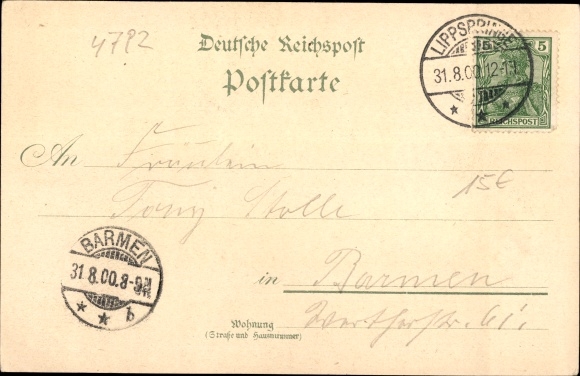 4782
Deutsche Reichspost
Postkarte
LIPPSPRINGE
31.8.00. 12-1N.
5
REICHSPOST
An Fräulein
Tony Stolle
15€
BARMEN
31.8.00.8-9N.
* * b
in Barmen
Wohnung
(Straße und Hausnummer)
Wertherstr. 61.